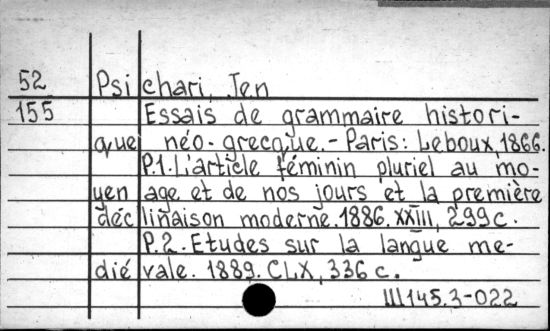 52 Psichari, Jen
155 Essais de grammaire histori-
que néo-grecque.- Paris: Leboux, 1866.
P.1. L'article féminin pluriel au mo-
yen age et de nos jours et la première
déclinaison moderne. 1886. XXIII, 299 c.
P.2. Etudes sur la langue me-
diévale. 1889. CLX, 336 c.
Ш145.3-022